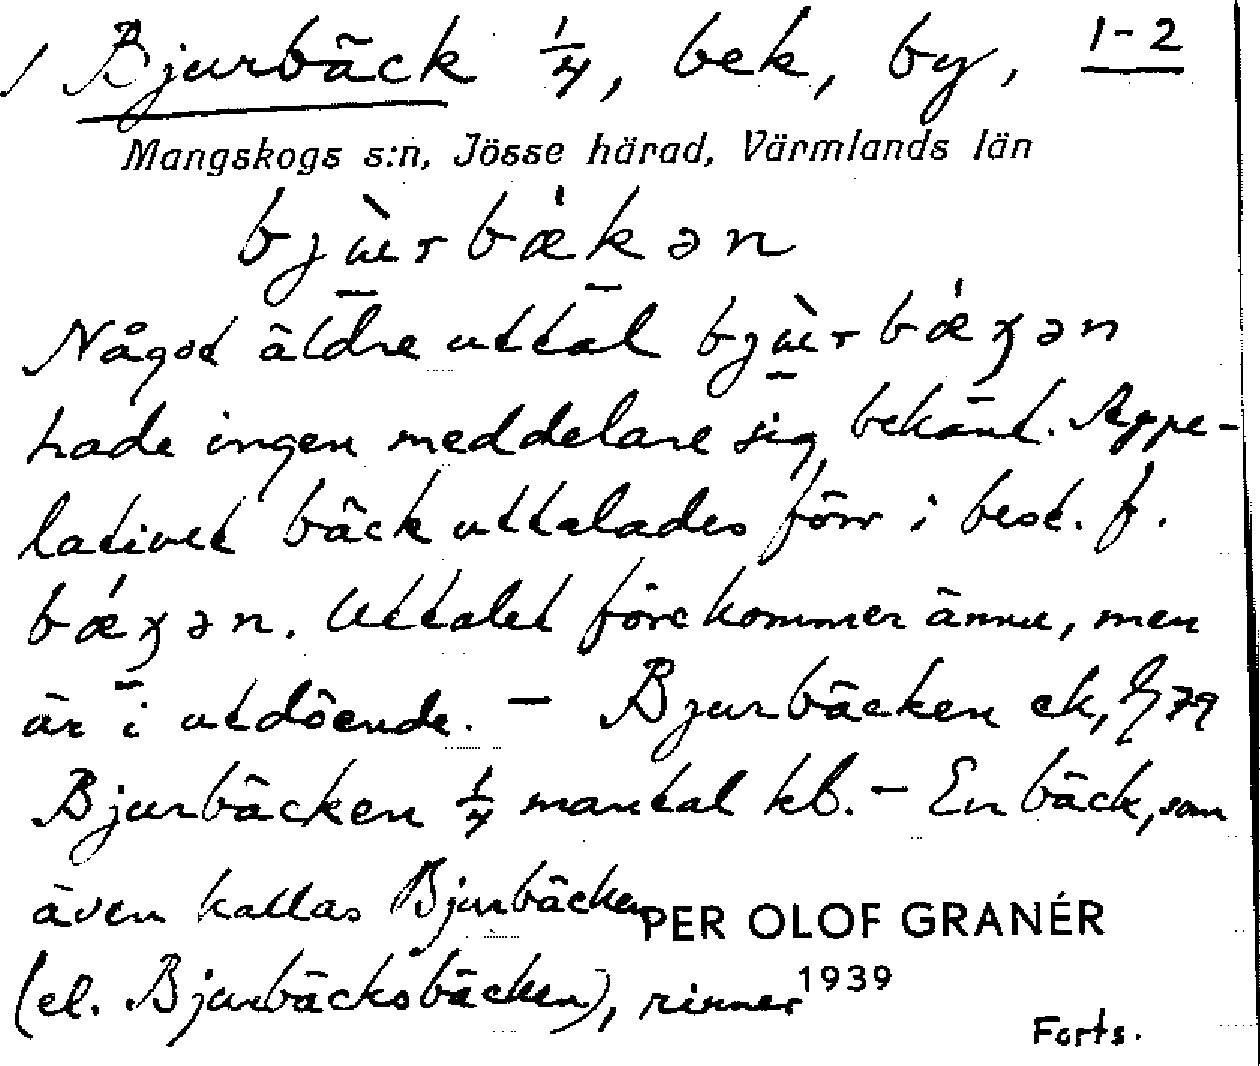 / Bjurbäck 1/4, bek, by, 1-2
Mangskogs s:n, Jösse härad, Värmlands län
bjɯ̀rbǽkən
Något äldre uttal bjɯ̀rbǽɣən
hade ingen meddelare sig bekant. Appe-
lativet bäck uttalades förr i best. f.
bǽɣən. Uttalet förekommer ännu, men
är i utdöende. – Bjurbäcken ek, 79
Bjurbäcken 1/4 mantal kb. – En bäck, som
även kallas Bjurbäcken
PER OLOF GRANÉR
(el. Bjurbäcksbäcken), rinner
1939
Forts.